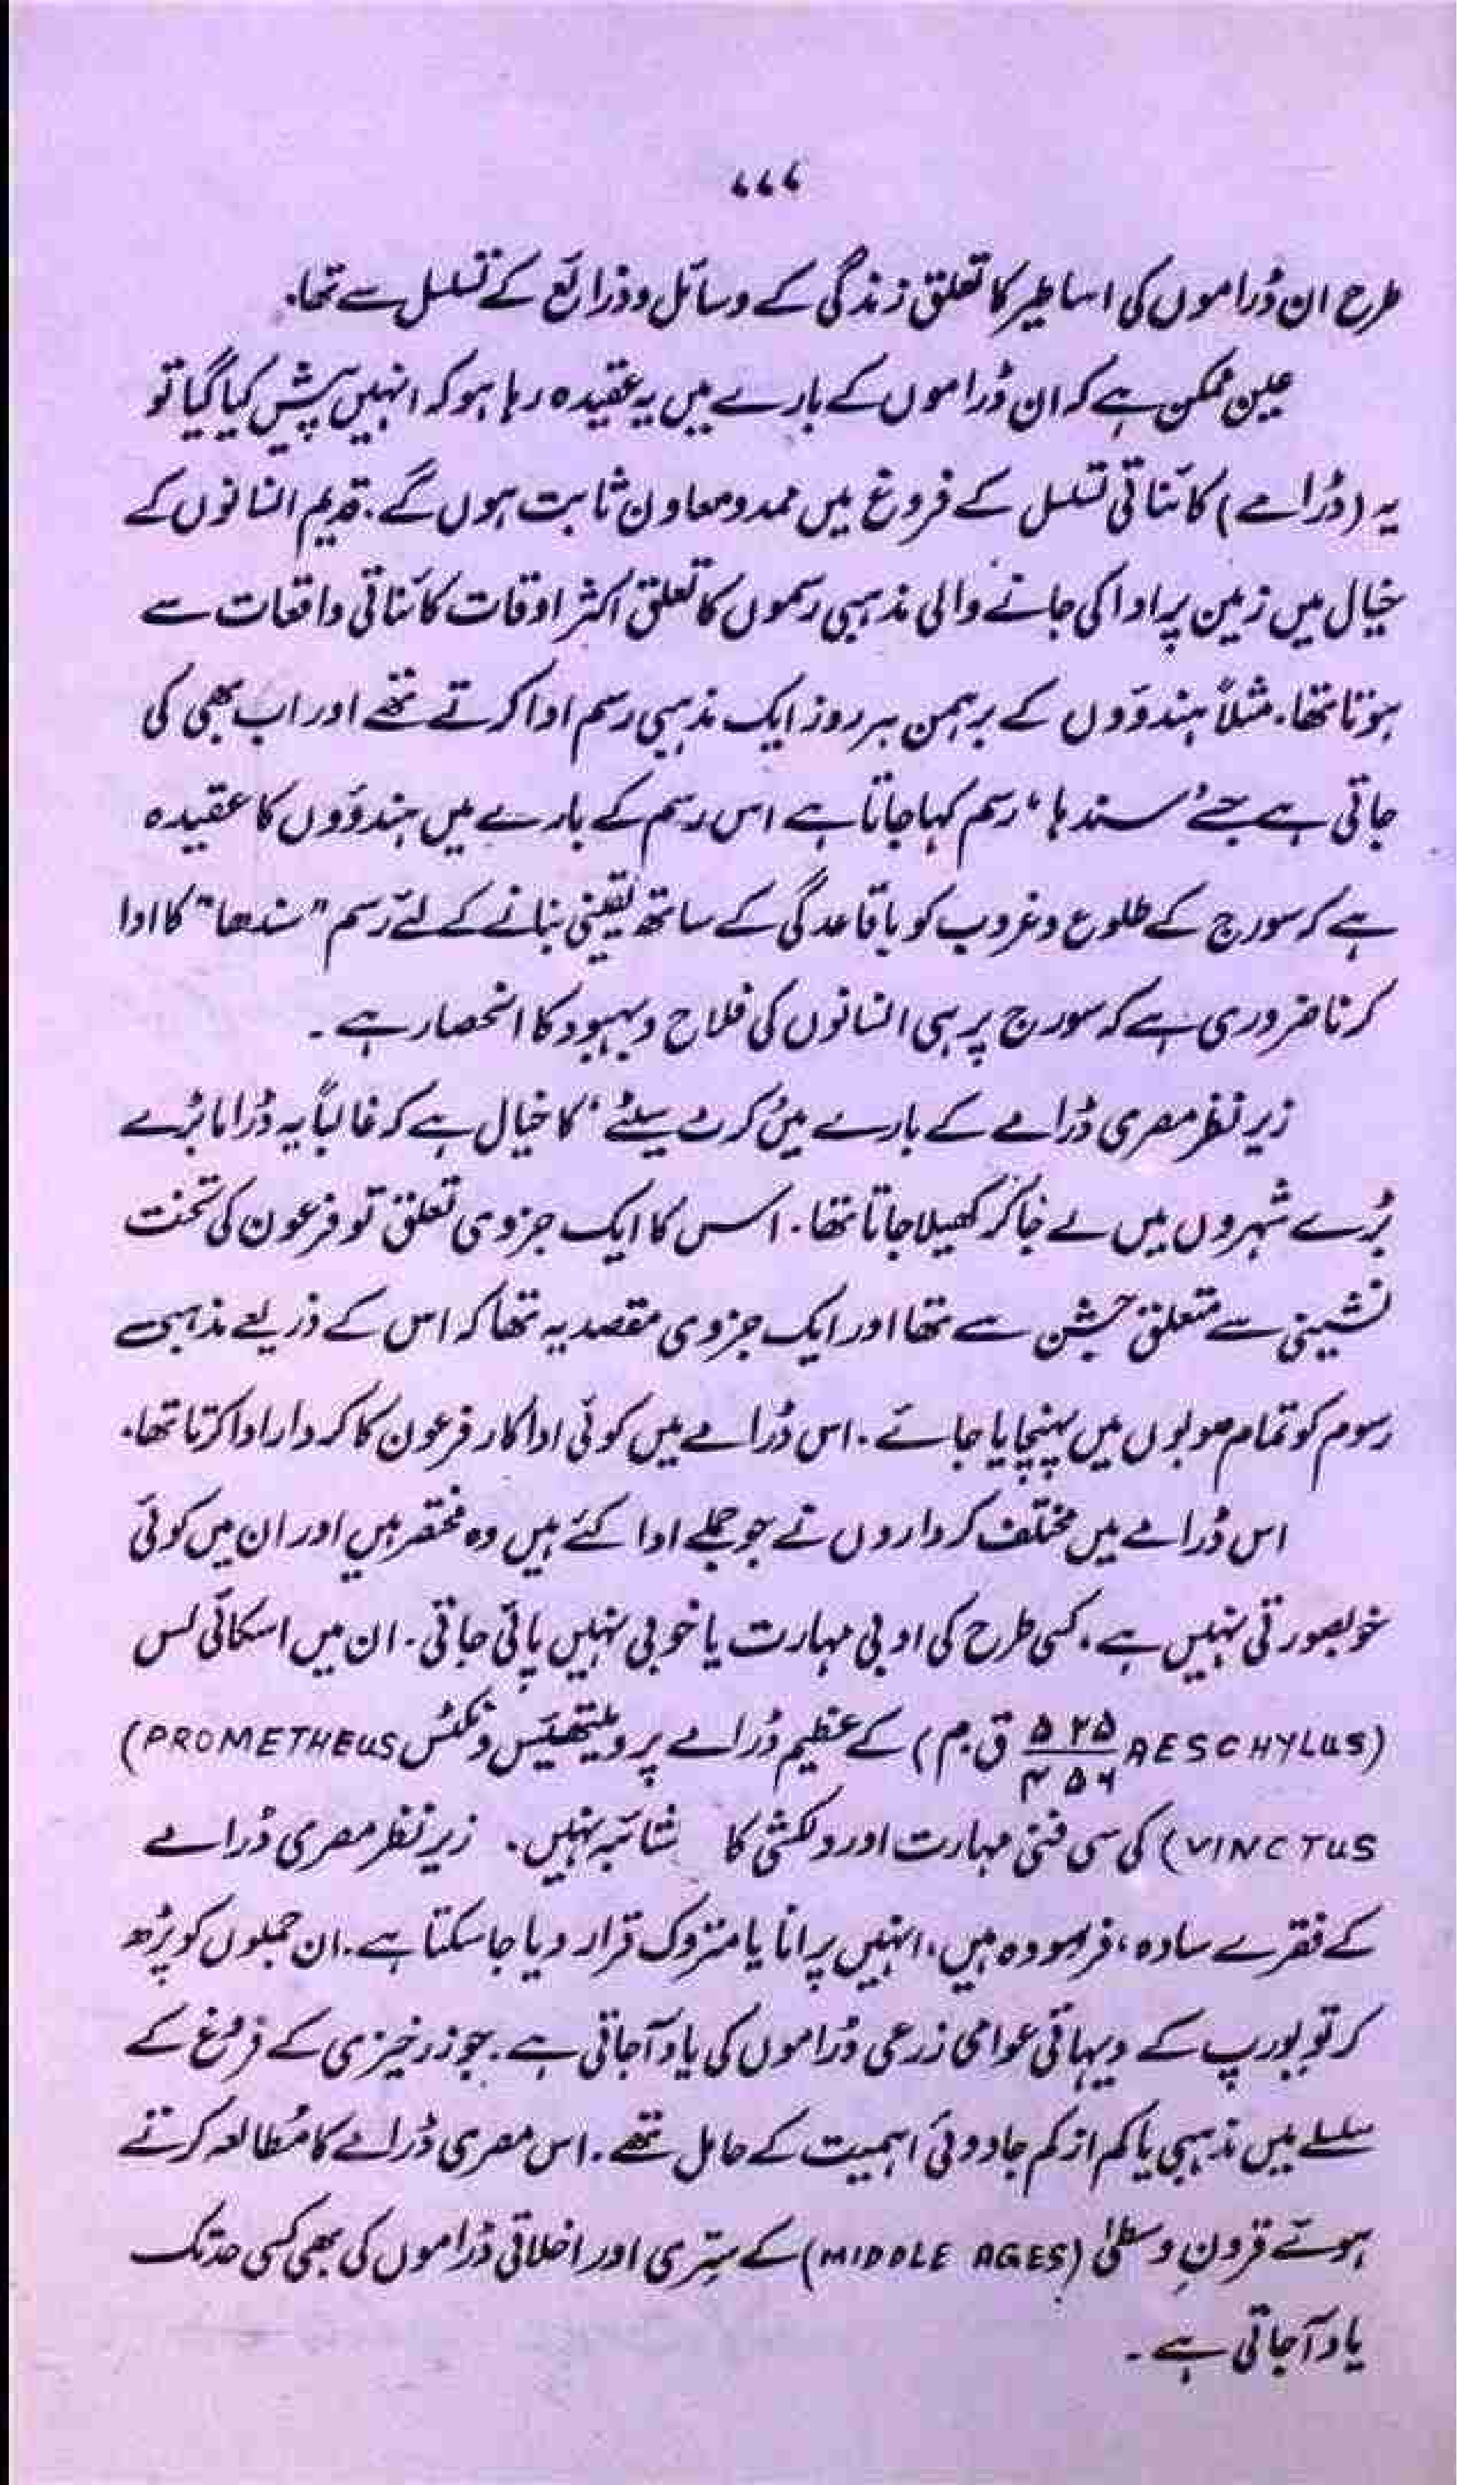 ۶۶۶
طرح ان ڈراموں کی اساطیر کا تعلق زندگی کے وسائل و ذرائع کے تسلسل سے تھا۔
عین ممکن ہے کہ ان ڈراموں کے بارے میں یہ عقیدہ رہا ہو کہ انہیں پیش کیا گیا تو
یہ (ڈرامے) کائناتی تسلسل کے فروغ میں ممد و معاون ثابت ہوں گے۔ قدیم انسانوں کے
خیال میں زمین پر ادا کی جانے والی مذہبی رسموں کا تعلق اکثر اوقات کائناتی واقعات سے
ہوتا تھا۔ مثلاً ہندوؤں کے برہمن ہر روز ایک مذہبی رسم ادا کرتے تھے اور اب بھی کی
جاتی ہے جسے ’سندہا‘ رسم کہا جاتا ہے اس رسم کے بارے میں ہندوؤں کا عقیدہ
ہے کہ سورج کے طلوع و غروب کو باقاعدگی کے ساتھ یقینی بنانے کے لئے رسم "سندھا" کا ادا
کرنا ضروری ہے کہ سورج پر ہی انسانوں کی فلاح و بہبود کا انحصار ہے۔
زیر نظر مصری ڈرامے کے بارے میں ’کرٹ سیٹے‘ کا خیال ہے کہ غالباً یہ ڈراما بڑے
بڑے شہروں میں لے جا کر کھیلا جاتا تھا۔ اس کا ایک جزوی تعلق تو فرعون کی تخت
نشینی سے متعلق جشن سے تھا اور ایک جزوی مقصد یہ تھا کہ اس کے ذریعے مذہبی
رسوم کو تمام صوبوں میں پہنچایا جائے۔ اس ڈرامے میں کوئی اداکار فرعون کا کردار ادا کرتا تھا۔
اس ڈرامے میں مختلف کرداروں نے جو جملے ادا کئے ہیں وہ مختصر ہیں اور ان میں کوئی
خوبصورتی نہیں ہے، کسی طرح کی ادبی مہارت یا خوبی نہیں پائی جاتی۔ ان میں اسکائی لس
(AESCHYLUS ۵۲۵/۴۵۶ ق۔م) کے عظیم ڈرامے پرومیتھیئس ونکٹس (PROMETHEUS
VINCTUS) کی سی فنی مہارت اور دلکشی کا شائبہ نہیں۔ زیر نظر مصری ڈرامے
کے فقرے سادہ، فرسودہ ہیں، انہیں پرانا یا متروک قرار دیا جا سکتا ہے۔ ان جملوں کو پڑھ
کر تو یورپ کے دیہاتی عوامی زرعی ڈراموں کی یاد آجاتی ہے۔ جو زرخیزی کے فروغ کے
سلسلے میں مذہبی یا کم از کم جادوئی اہمیت کے حامل تھے۔ اس مصری ڈرامے کا مُطالعہ کرتے
ہوئے قرونِ وسطیٰ (MIDDLE AGES) کے سِرّی اور اخلاقی ڈراموں کی بھی کسی حد تک
یاد آجاتی ہے۔